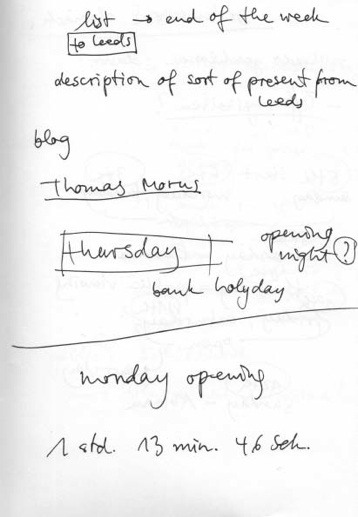 list → end of the week
to Leeds
description of sort of present from
Leeds
blog
Thomas Morus
thursday
opening
night ?
bank holyday
monday opening
1 std. 13 min. 46 Sek.